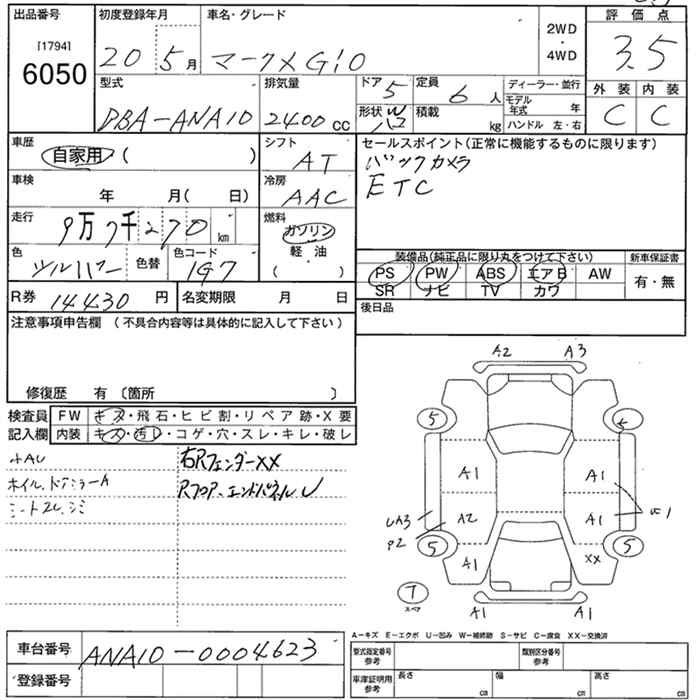 出品番号 初度登録年月 車名・グレード 評価点
[1794]
6050
20 5月 マークX Gio
2WD
・
4WD
3.5
型式 排気量 ドア 5 定員 6人 ディーラー・並行 外装 内装
DBA-ANA10 2400cc 形状 W ハコ 積載 kg モデル年式 年 C C
ハンドル 左・右
車歴 シフト セールスポイント(正常に機能するものに限ります)
自家用 ( ) AT バックカメラ
車検 冷房 ETC
年 月( 日) AAC
走行 燃料
9万7千270km ガソリン
色 色替 色コード 軽・油 装備品(純正品に限り丸をつけて下さい) 新車保証書
シルバー 197 ( ) PS PW ABS エアB AW 有・無
SR ナビ TV カワ
R券 14430円 名変期限 月 日 後日品
注意事項申告欄 (不具合内容等は具体的に記入して下さい)
修復歴 有 〔箇所 〕
検査員 FW キズ・飛石・ヒビ割・リペア跡・X要
記入欄 内装 キズ・汚レ・コゲ・穴・スレ・キレ・破レ
右Rフェンダーxx
ホイル、ドアミラーA Rフロア、エンドパネルU
シートスレ、シミ
A2 A3
5
A1 A1
A2 A1
UA3
5 A1 xx 5
T
スペア
A1 A1
A-キズ E-エクボ U-凹み W-補修跡 S-サビ C-腐食 XX-交換済
車台番号 ANA10-0004623
型式指定番号 参考 類別区分番号 参考
登録番号 車庫証明用 参考 長さ cm 幅 cm 高さ cm